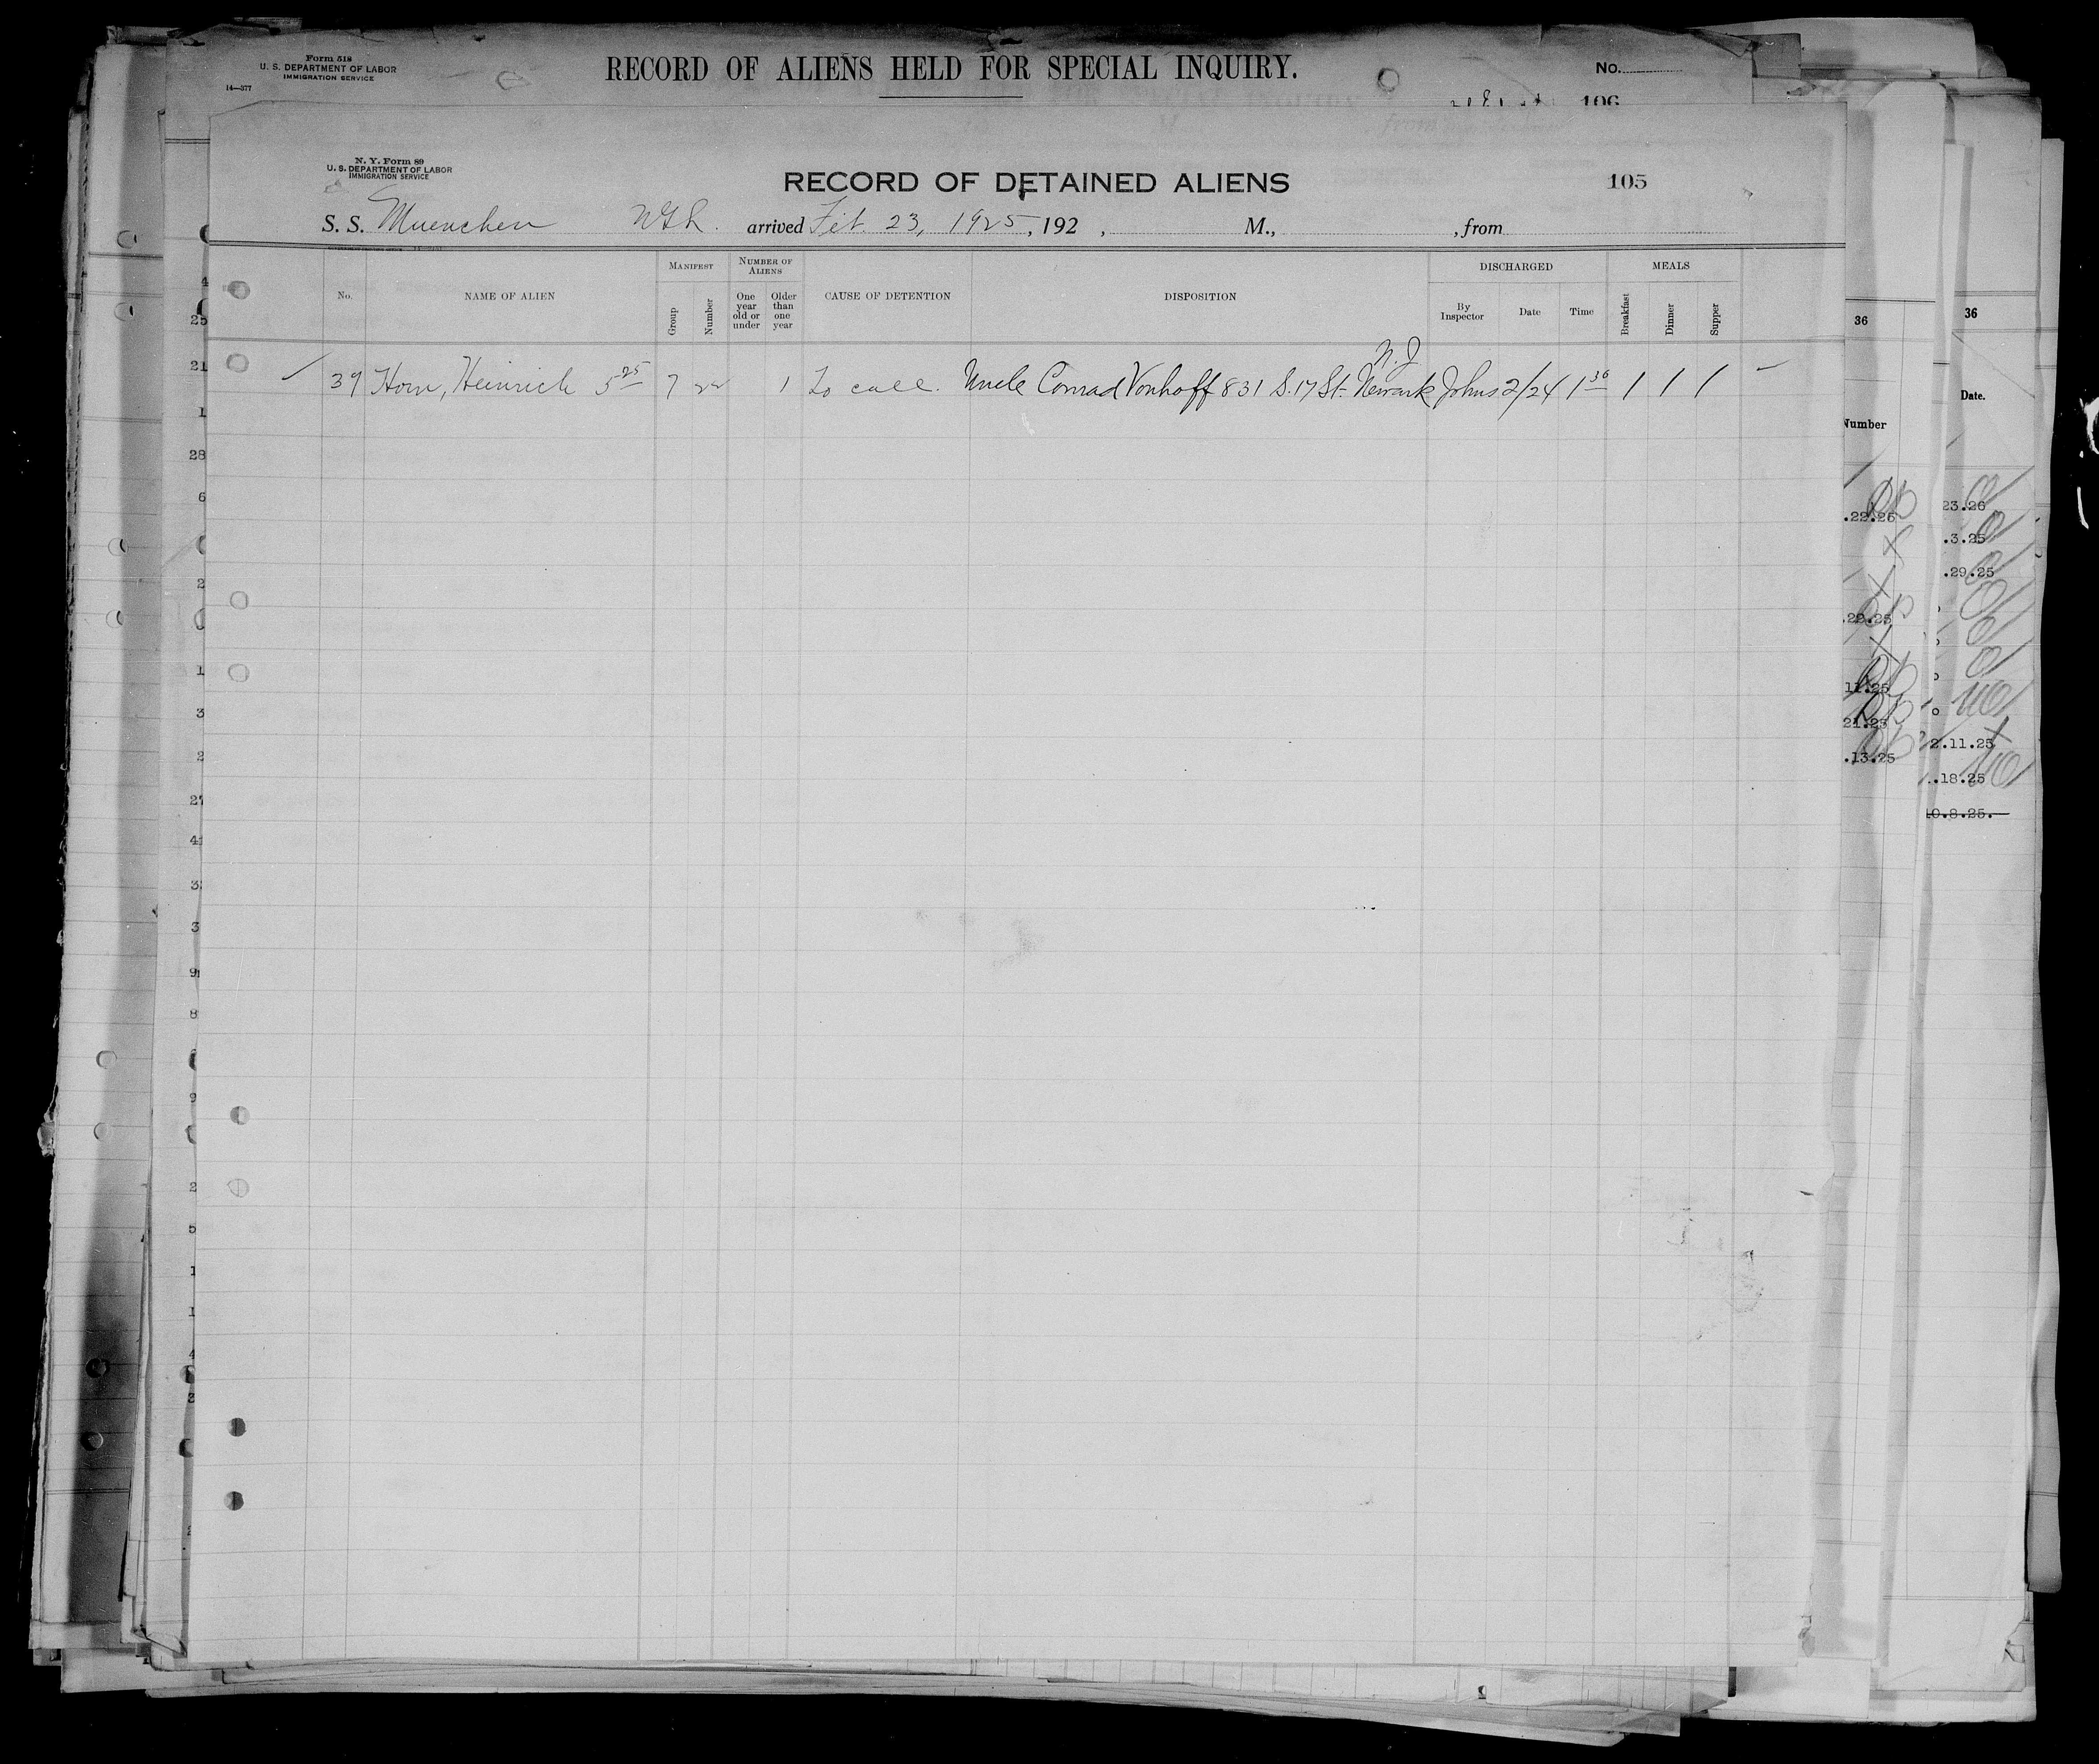 Form 518
U. S. DEPARTMENT OF LABOR
IMMIGRATION SERVICE
14—377
RECORD OF ALIENS HELD FOR SPECIAL INQUIRY.
No.
106
N. Y. Form 89
U. S. DEPARTMENT OF LABOR
IMMIGRATION SERVICE
RECORD OF DETAINED ALIENS
105
S. S. Muenchen NGL. arrived Feb. 23, 1925, 192 , M., , from
No. NAME OF ALIEN MANIFEST Group Number NUMBER OF ALIENS One year old or under Older than one year CAUSE OF DETENTION DISPOSITION DISCHARGED By Inspector Date Time MEALS Breakfast Dinner Supper
N. J.
39 Horn, Heinrich 5 25 7 22 1 To call. Uncle Conrad Vonhoff 831 S. 17 St. Newark Johns 2/24 1 36 1 1 1
36
Number
.22.26
.22.25
11.25
21.25
.13.25
36
Date.
23.26
.3.25
.29.25
2.11.25
.18.25
10.8.25.